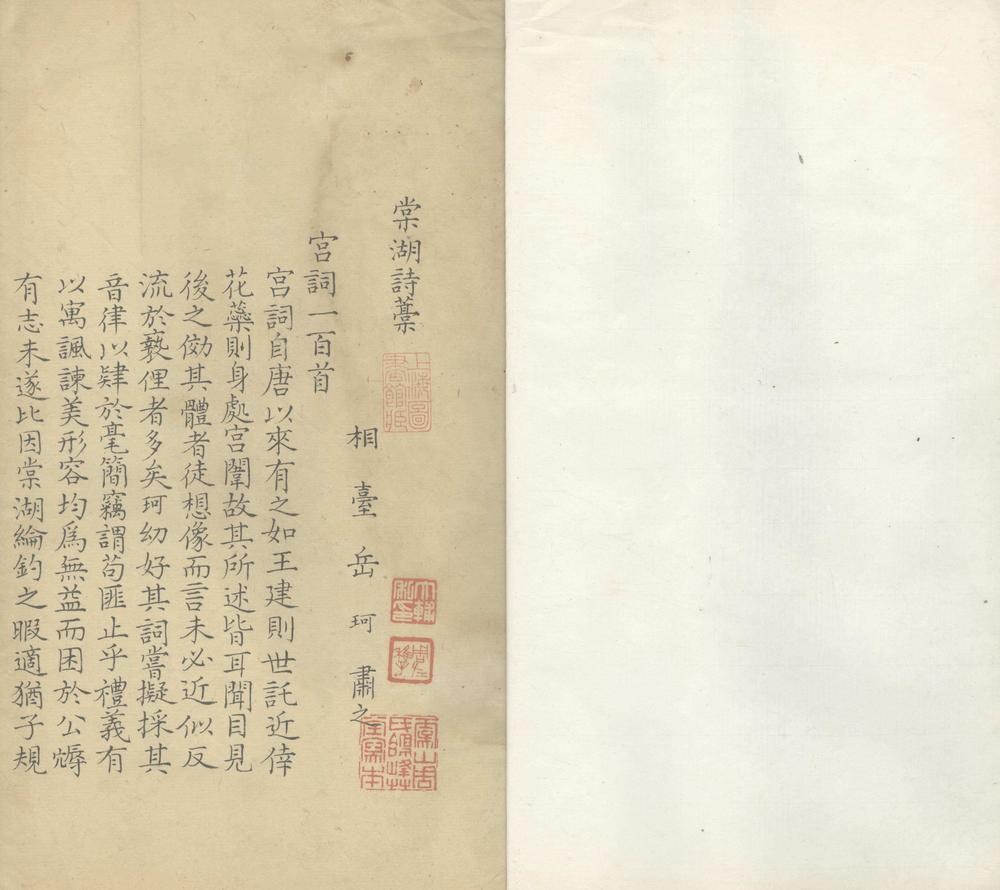 棠湖詩藳
相臺岳珂肅之
宮詞一百首
宮詞自唐以來有之如王建則世託近倖
花蘂則身處宮闈故其所述皆耳聞目見
後之効其體者徒想像而言未必近似反
流於褻俚者多矣珂幼好其詞嘗擬採其
音律以肄於毫簡竊謂苟匪止乎禮義有
以寓諷諫美形容均爲無益而困於公
有志未遂比因棠湖綸釣之暇適猶子規
上海圖書館臧